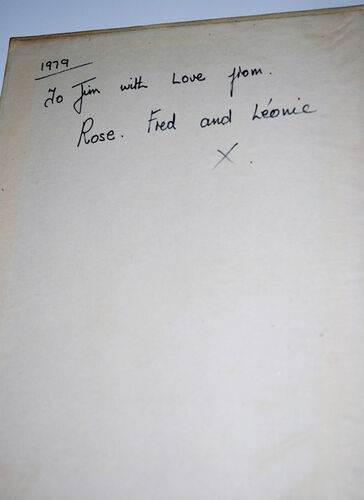 1979
To Jim with Love from.
Rose. Fred and Léonie
X.